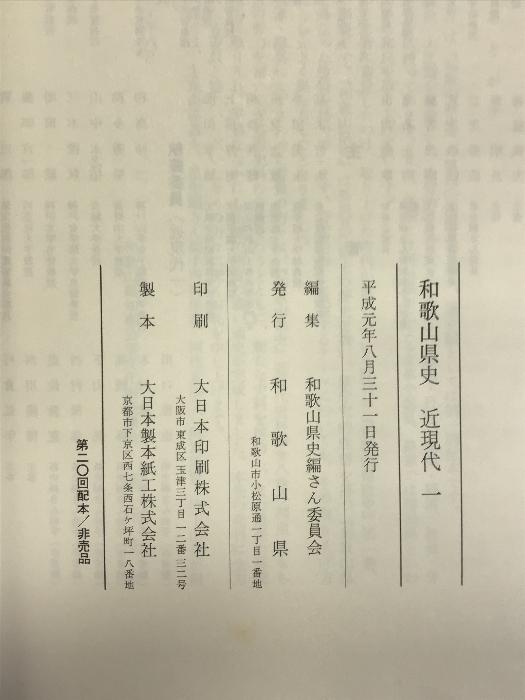 和歌山県史　近現代　一
平成元年八月三十一日発行
編集　和歌山県史編さん委員会
発行　和歌山県
和歌山市小松原通一丁目一番地
印刷　大日本印刷株式会社
大阪市東成区玉津三丁目一二番三二号
製本　大日本製本紙工株式会社
京都市下京区西七条西石ケ坪町一八番地
第二〇回配本／非売品